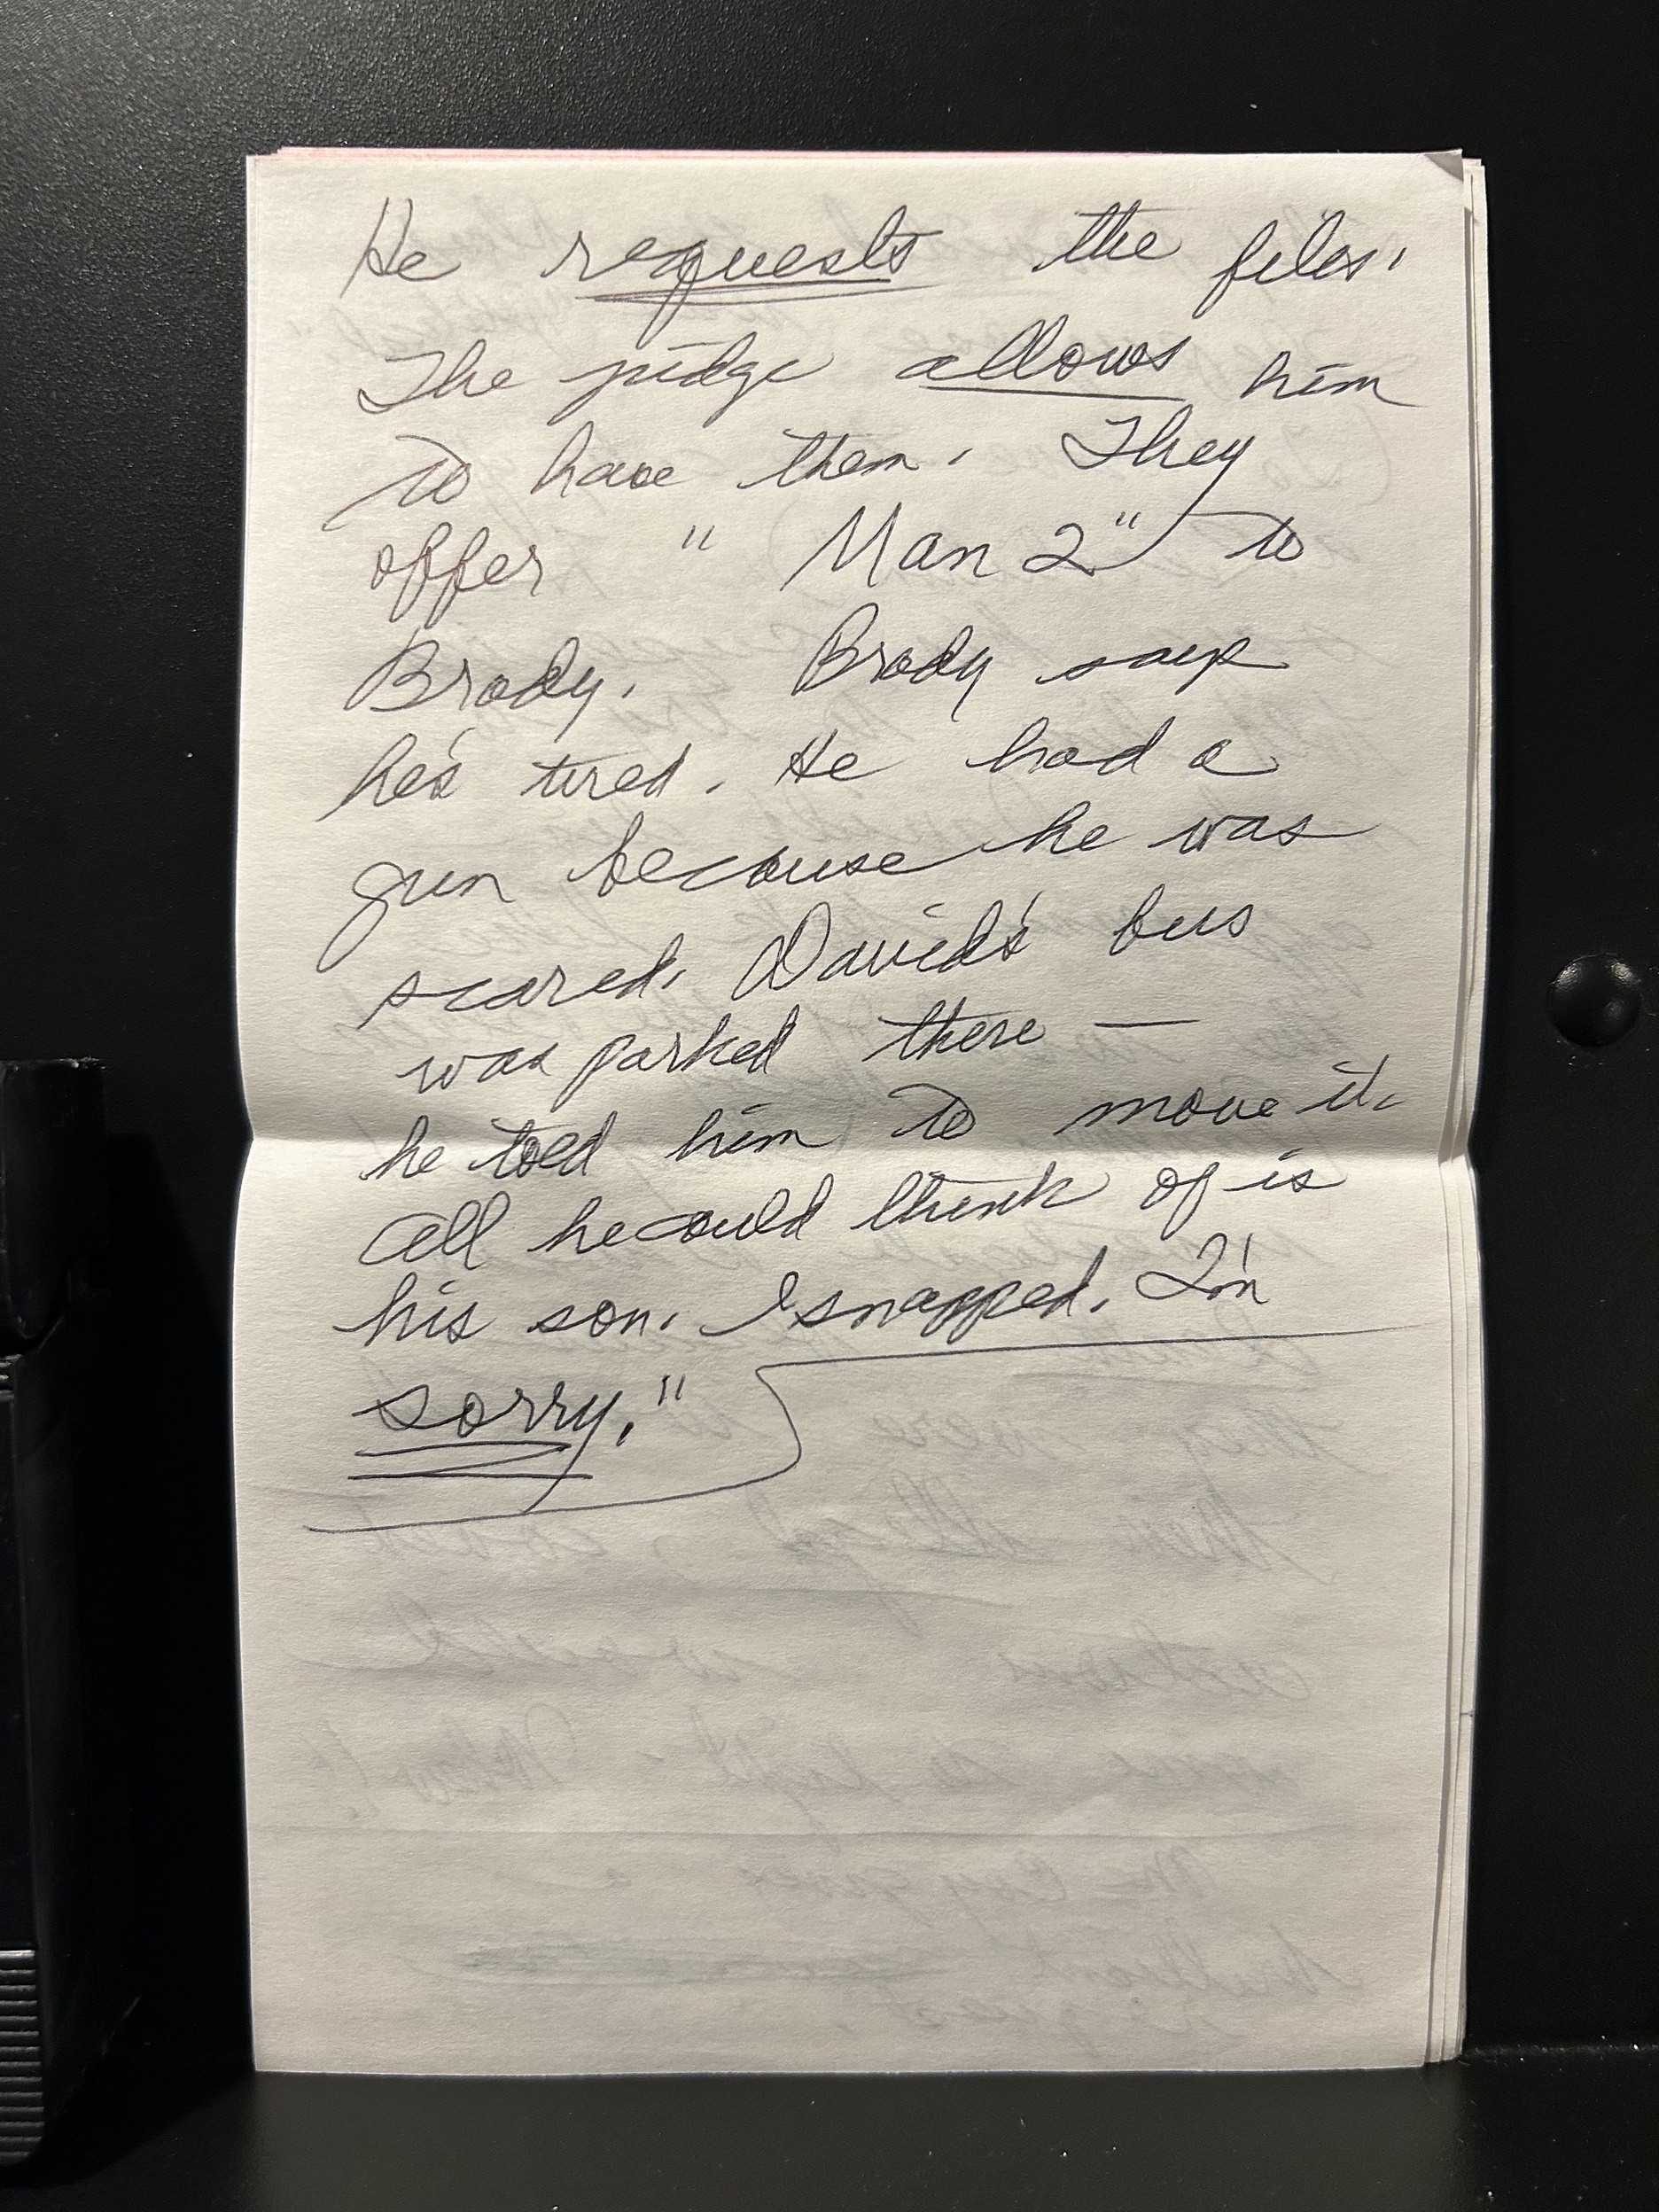 He requests the files.
The judge allows him
to have them. They
offer "Man 2" to
Brody. Brody says
he's tired. He had a
gun because he was
scared. David's bus
was parked there —
he told him to move it.
All he could think of is
his son. I snapped. I'm
sorry."